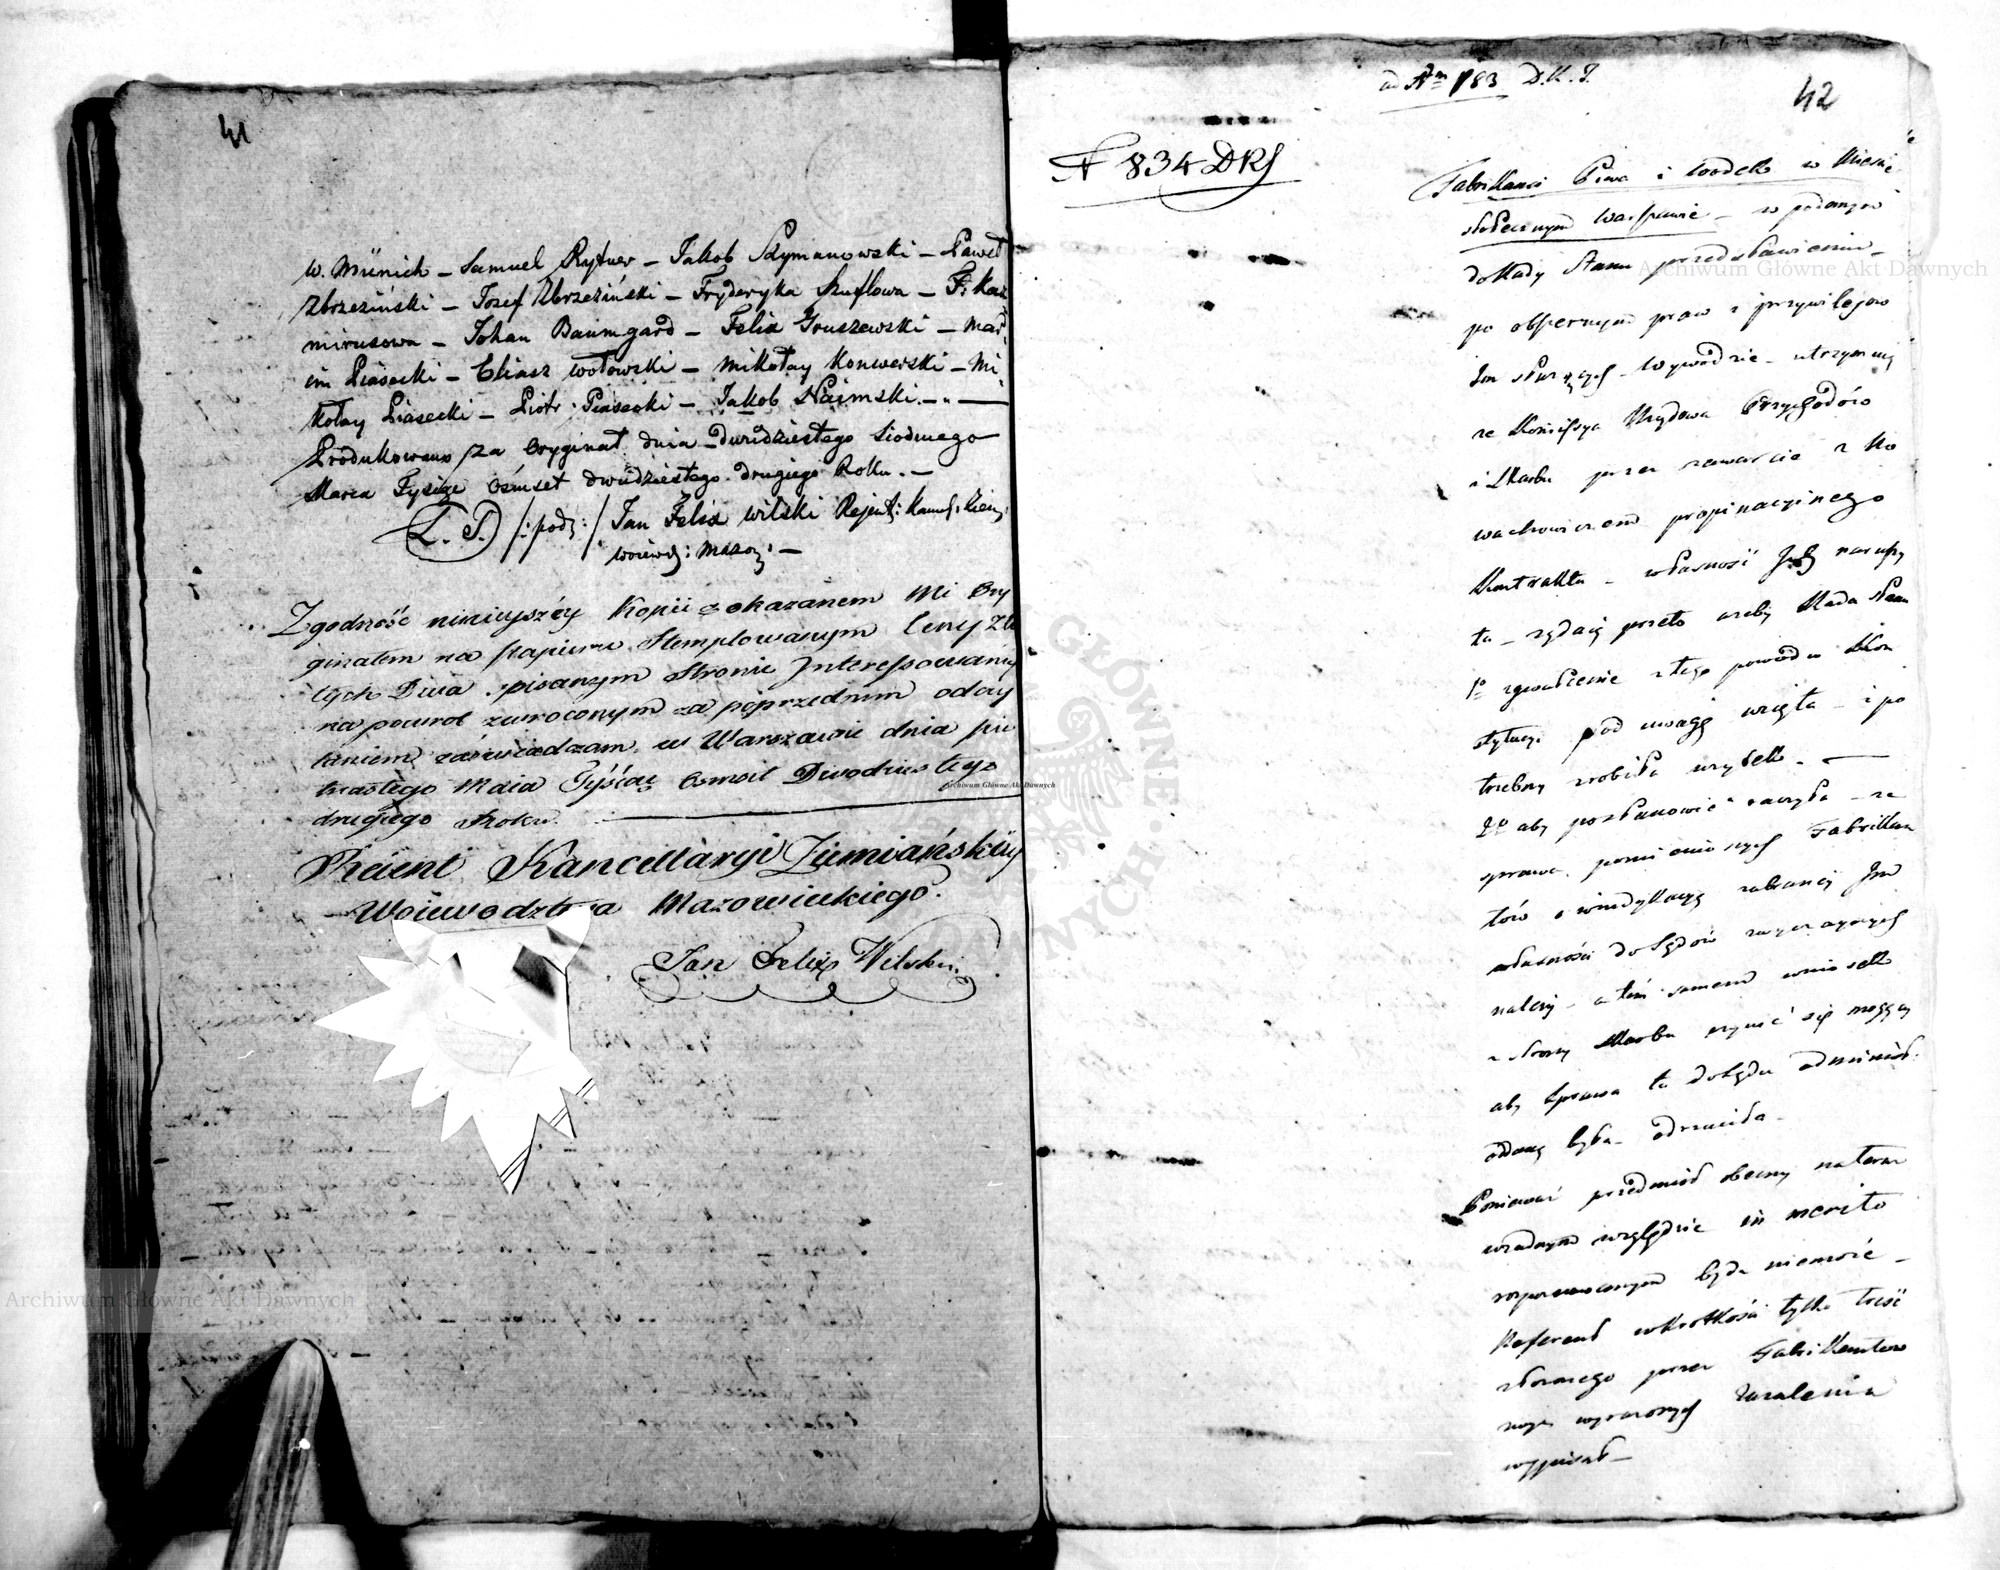 41
W. Münich – Samuel Rytner – Jakob Szymanowski – Paweł
Zbrzeziński – Jozef Zbrzeziński – Fryderyka Szuflowa – F: Kaz
mirusowa – Johan Baumgard – Felix Gruszewski – Mar
cin Piasecki – Eliasz Wołowski – Mikołay Konwerski – Mi
kołay Piasecki – Piotr Piasecki – Jakob Naimski. –
Produkowano za Oryginał dnia Dwudziestego Siodmego
Marca Tysiąc Ośmset dwudziestego drugiego Roku. –
L. S. /:podp:/ Jan Felix Wilski Rejent: Kanc: Ziem:
Wojewdz: Mazow: –
Zgodność ninieyszéy Kopii z okazanem mi Ory
ginałem na papierze Stemplowanym Ceny Zło
tych Dwa spisanym Stronie Interessowaney
na powrot zwroconym za poprzednim odczy
taniem zaświadczam w Warszawie dnia pię
tnastego Maia Tysiąc Osmset Dwudziestego
drugiego Roku.
Reient Kancellaryi Ziemiańskiéy
Woiewodztwa Mazowieckiego.
Jan Felix Wilski
ad Nm 783 D.K.S.
42
N 834 DKS
Fabrikanci Piwa i wodek w Mieście
stołecznym Warszawie – w podanym
do Rady Stanu przedstawieniu –
po obszernym praw i przywilejow
Im służących – wywodzie – utrzymują
że Kommissya Rządowa Przychodów
i Skarbu przez zawarcie z No
wachowiczem propinacyinego
Kontraktu – własność Ich narusży
ła – żądaią przeto ażeby Rada Stanu
1o zgwałcenie z tego powodu Kon
stytucyi pod uwagę wzięła – i po
trzebny zrobiła użytek. –
2o aby postanowić raczyła – że
sprawa pomienionych Fabrikan
tów o windykacyę zabraney Im
własności do Sądów zwyczaynych
należy – a tém samem wniosek
z strony Skarbu czynić się mogący
aby sprawa ta do Sądu administr:
oddaną była – odrzuciła –
Ponieważ przedmiot obecny na teraz
w żadnym względzie in merito
rozpoznawanym być nie może –
Referent w krotkości tylko treść
złożonego przez Fabrikantow
wyrażonych Zażalenia
wypisał –
Archiwum Główne Akt Dawnych
Archiwum Główne Akt Dawnych
Archiwum Główne Akt Dawnych